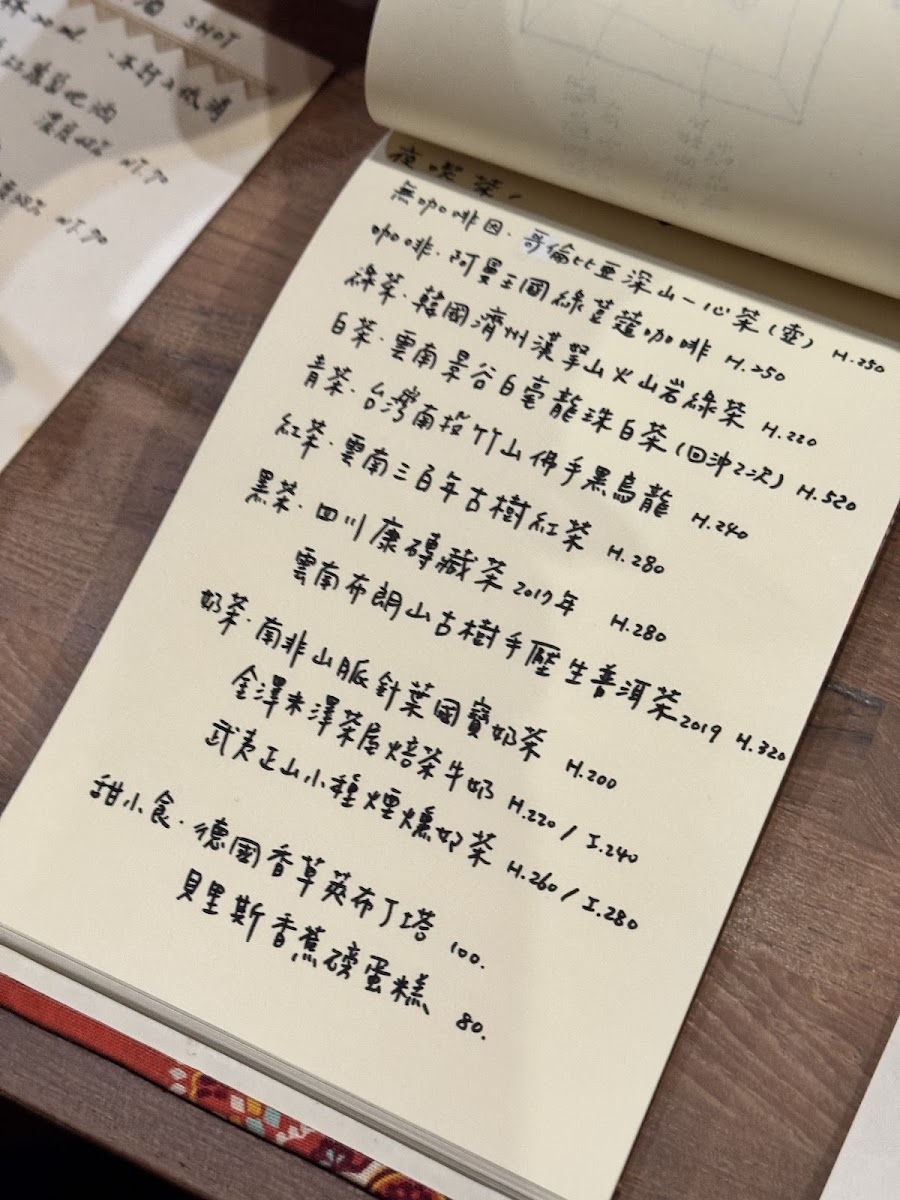 SHOT
濃度42% NT.70
NT.70
夜喫茶,
無咖啡因.哥倫比亞深山一心茶(壺) H.250
咖啡.阿曼王國綠荳蔻咖啡 H.250
綠茶.韓國濟州漢拏山火山岩綠茶 H.220
白茶.雲南景谷白毫龍珠白茶(回沖2次) H.520
青茶.台灣南投竹山佛手黑烏龍 H.240
紅茶.雲南三百年古樹紅茶 H.280
黑茶.四川康磚藏茶2017年 H.280
雲南布朗山古樹手壓生普洱茶2019 H.320
奶茶.南非山脈針葉國寶奶茶 H.200
金澤米澤茶屋焙茶牛奶 H.220/I.240
武夷正山小種煙燻奶茶 H.260/I.280
甜小食.德國香草莢布丁塔 100.
貝里斯香蕉磅蛋糕 80.